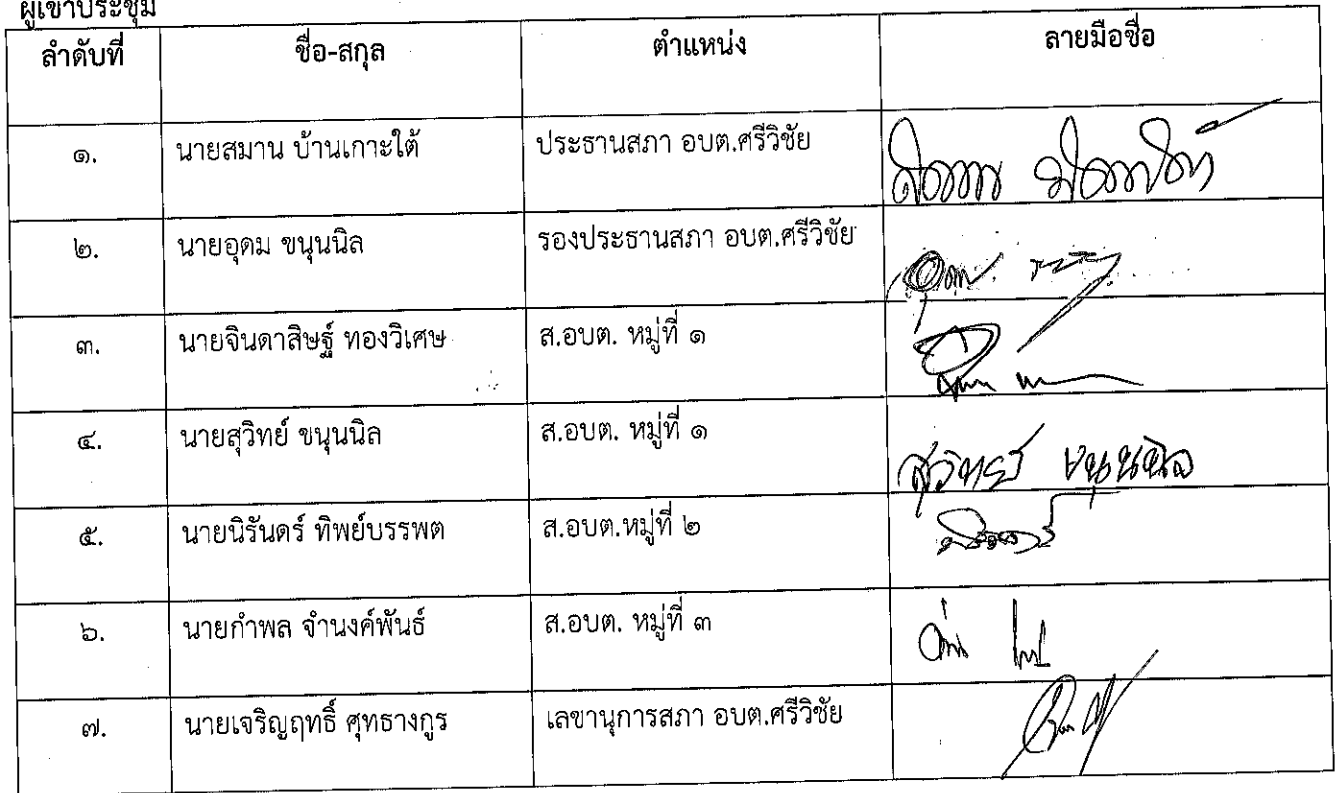 ผู้เข้าประชุม
ลำดับที่ ชื่อ-สกุล ตำแหน่ง ลายมือชื่อ
๑. นายสมาน บ้านเกาะใต้ ประธานสภา อบต.ศรีวิชัย
๒. นายอุดม ขนุนนิล รองประธานสภา อบต.ศรีวิชัย
๓. นายจินดาสิษฐ์ ทองวิเศษ ส.อบต. หมู่ที่ ๑
๔. นายสุวิทย์ ขนุนนิล ส.อบต. หมู่ที่ ๑ สุวิทย์ ขนุนนิล
๕. นายนิรันดร์ ทิพย์บรรพต ส.อบต.หมู่ที่ ๒
๖. นายกำพล จำนงค์พันธ์ ส.อบต. หมู่ที่ ๓
๗. นายเจริญฤทธิ์ ศุทธางกูร เลขานุการสภา อบต.ศรีวิชัย